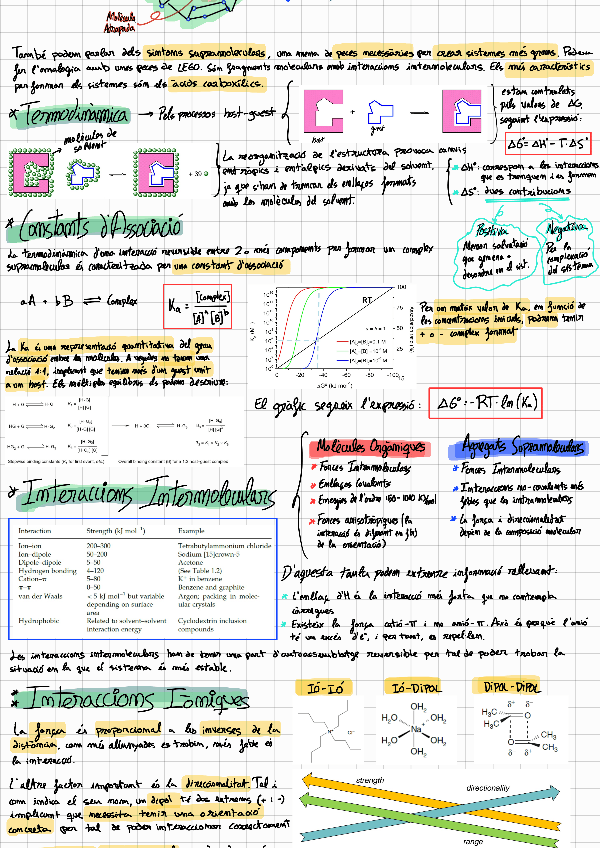 Molècula
Atrapada
També podem parlar dels sintons supramoleculars, una mena de peces necessàries per crear sistemes més grans. Podem
fer l'analogia amb unes peces de LEGO. Són fragments moleculars amb interaccions intermoleculars. Els més característics
per formar els sistemes són els àcids carboxílics.
* Termodinàmica → Pels processos host-guest
host
+
guest
estam controlats
pels valors de ΔG,
seguint l'expressió:
ΔG = ΔH° - T·ΔS°
molècules de
solvent
+
La reorganització de l'estructura provoca canvis
entròpics i entàlpics derivats del solvent,
ja que s'han de trencar els enllaços formats
amb les molècules del solvent.
* ΔH°: correspon a les interaccions
que es trenquen i es formen
* ΔS°: dues contribucions
Positiva
Menor solvatació
que genera +
desordre en el sist.
Negativa
Per la
complexació
del sistema
* Constants d'Associació
La termodinàmica d'una interacció reversible entre 2 o més components per formar un complex
supramolecular és caracteritzada per una constant d'associació
aA + bB ⇌ Complex
Ka = [complex] / [A]^a [B]^b
RT
Per un mateix valor de Ka, en funció de
les concentracions inicials, podrem tenir
+ o - complex format
La Ka és una representació quantitativa del grau
d'associació entre la molècula. A vegades no tenim una
relació 1:1, implicant que tenim més d'un guest unit
a un host. Els múltiples equilibris es poden descriure:
El gràfic segueix l'expressió: ΔG° = -RT·ln(Ka)
Molècules Orgàniques
* Forces Intramoleculars
* Enllaços Covalents
* Energies de l'ordre 150-1000 kJ/mol
* Forces anisotròpiques (la
interacció és diferent en f(x)
de la orientació)
Agregats Supramoleculars
* Forces Intermoleculars
* Interaccions no-covalents més
febles que les intramoleculars
* La força i direccionalitat
depèn de la composició molecular
* Interaccions Intermoleculars
Interaction Strength (kJ mol⁻¹) Example
Ion–ion 200–300 Tetrabutylammonium chloride
Ion–dipole 50–200 Sodium [15]crown-5
Dipole–dipole 5–50 Acetone
Hydrogen bonding 4–120 (See Table 1.2)
Cation–π 5–80 K⁺ in benzene
π–π 0–50 Benzene and graphite
van der Waals <5 kJ mol⁻¹ but variable Argon; packing in molec-
depending on surface ular crystals
area
Hydrophobic Related to solvent–solvent Cyclodextrin inclusion
interaction energy compounds
D'aquesta taula podem extreure informació rellevant:
* L'enllaç d'H és la interacció més forta que no contempla
càrregues
* Existeix la força catió-π i no anió-π. Això és perquè l'anió
té un excés d'e⁻, i per tant, es repel·len.
Les interaccions intermoleculars han de tenir una part d'autoassemblatge reversible per tal de poder trobar la
situació en la que el sistema és més estable.
* Interaccions Iòniques
La força és proporcional a les inverses de la
distància, com més allunyades es trobin, més feble és
la interacció.
L'altre factor important és la direccionalitat. Tal i
com indica el seu nom, un dipol té dos extrems (+ i -)
implicant que necessita tenir una orientació
concreta per tal de poder interaccionar correctament
Ió-Ió
Ió-Dipol
Dipol-Dipol
N⁺ Cl⁻
OH₂
H₂O OH₂
Na⁺
H₂O OH₂
OH₂
δ⁺ δ⁻
H₃C
H₃C
O
O
CH₃
CH₃
δ⁻ δ⁺
strength
directionality
range